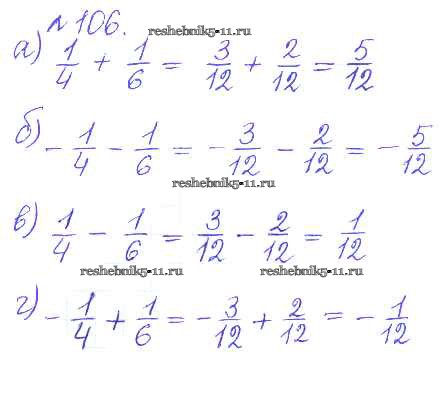 № 106.
reshebnik5-11.ru
а) 1/4 + 1/6 = 3/12 + 2/12 = 5/12
б) - 1/4 - 1/6 = - 3/12 - 2/12 = - 5/12
reshebnik5-11.ru
в) 1/4 - 1/6 = 3/12 - 2/12 = 1/12
reshebnik5-11.ru reshebnik5-11.ru
г) - 1/4 + 1/6 = - 3/12 + 2/12 = - 1/12